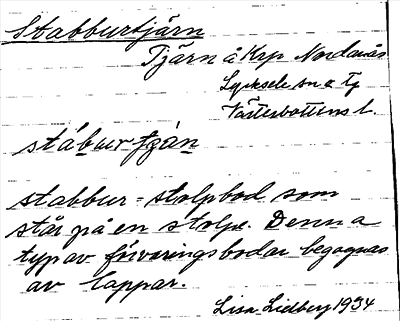 Stabburtjärn
Tjärn å Krp Nordanås
Lycksele sn o Tg
Västerbottens l.
stáburtjąn
stabbur = stolpbod som
står på en stolpe. Denna
typ av förvaringsbodar begagnas
av lappar.
Lisa Lidberg 1934